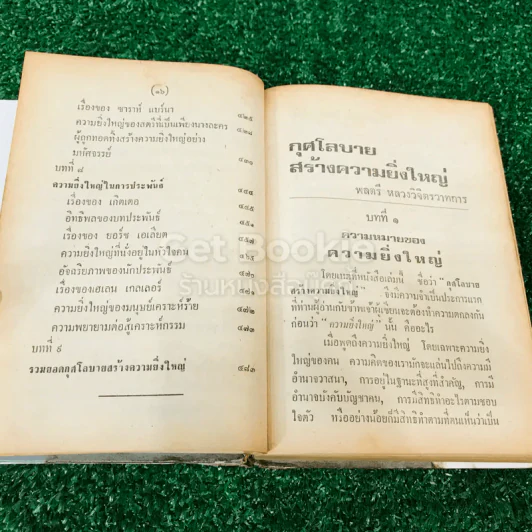 (๑๖)
เรื่องของ ซาราห์ แบร์นา ๔๒๕
ความยิ่งใหญ่ของสตรีที่เป็นเพียงนางละคร ๔๒๘
ผู้ถูกทอดทิ้งสร้างความยิ่งใหญ่อย่าง
มหัศจรรย์ ๔๓๑
บทที่ ๘
ความยิ่งใหญ่ในการประพันธ์ ๔๔๔
เรื่องของ เกิตเต ๔๔๕
อิทธิพลของบทประพันธ์ ๔๕๑
เรื่องของ ยอร์ช เอเลียต ๔๕๗
ความยิ่งใหญ่ที่นั่งอยู่ในหัวใจคน ๔๖๕
อัจฉริยภาพของนักประพันธ์ ๔๗๐
เรื่องของเฮเลน เกลเลอร์ ๔๗๑
ความยิ่งใหญ่ของมนุษย์เคราะห์ร้าย ๔๗๒
ความพยายามต่อสู้เคราะห์กรรม ๔๗๓
บทที่ ๙
รวมยอดกุศโลบายสร้างความยิ่งใหญ่ ๔๘๓
กุศโลบาย
สร้างความยิ่งใหญ่
พลตรี หลวงวิจิตรวาทการ
บทที่ ๑
ความหมายของ
ความยิ่งใหญ่
โดยเหตุที่หนังสือเล่มนี้ ชื่อว่า "กุศโลบาย
สร้างความยิ่งใหญ่" จึงมีความจำเป็นประการแรก
ที่ท่านผู้อ่านกับข้าพเจ้าผู้เขียนจะต้องทำความตกลงกัน
ก่อนว่า "ความยิ่งใหญ่" นั้น คืออะไร
เมื่อพูดถึงความยิ่งใหญ่ โดยเฉพาะความยิ่ง
ใหญ่ของคน ความคิดของเรามักจะแล่นไปถึงความมี
อำนาจวาสนา, การอยู่ในฐานะที่สูงที่สำคัญ, การมี
อำนาจบังคับบัญชาคน, การมีสิทธิทำอะไรตามชอบ
ใจตัว หรืออย่างน้อยก็มีสิทธิทำตามที่ตนเห็นว่าเป็น
Get Bookie
ร้านหนังสือเก็ท